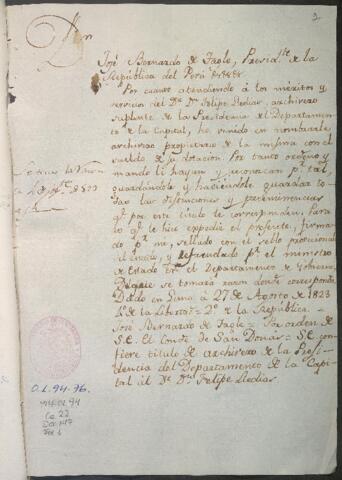 2
José Bernardo de Tagle, Presid.te de la
República del Perú &c &c &c
Por cuanto atendiendo á los méritos y
servicios del D.r D.n Felipe Lledias, archivero
suplente de la Presidencia del Departamento
de la Capital, he venido en nombrarle
archivero propietario de la misma con el
sueldo de su dotacion. Por tanto ordeno y
mando le hayan y reconozcan p.r tal,
guardandole y haciendole guardar to-
das las distinciones y preeminencias
q.e por este titulo le corresponden. Para
lo q.e le hice expedir el presente, firma-
do p.r mi, sellado con el sello provicional
del estado, y refrendado p.r el ministro
de Estado en el Departamento de Gobierno,
de que se tomará razon donde corresponda.
Dado en Lima á 27 de Agosto de 1823
4.o de la Libertad - 2.o de la República. -
José Bernardo de Tagle - Por orden de
S.E. El Conde de San Donás - S.E. con-
fiere titulo de archivero de la Presi-
dencia del Departamento de la Capi-
tal al D.r D.n Felipe Lledias
O.L. 94-76.
O.L. 94
Ca 22
Doc 147
Fol 1